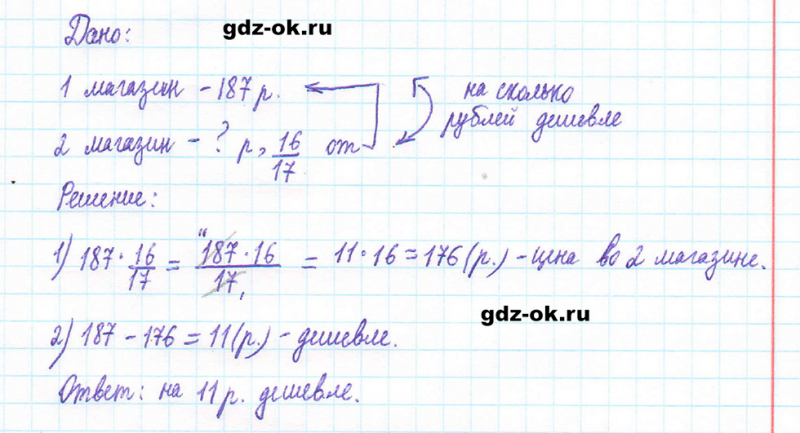 Дано:
gdz-ok.ru
1 магазин - 187 р.
на сколько
рублей дешевле
2 магазин - ? р, 16/17 от
Решение:
1) 187 · 16/17 = 187 · 16/17 = 11 · 16 = 176 (р.) - цена во 2 магазине.
11
1
gdz-ok.ru
2) 187 - 176 = 11 (р.) - дешевле.
Ответ: на 11 р. дешевле.